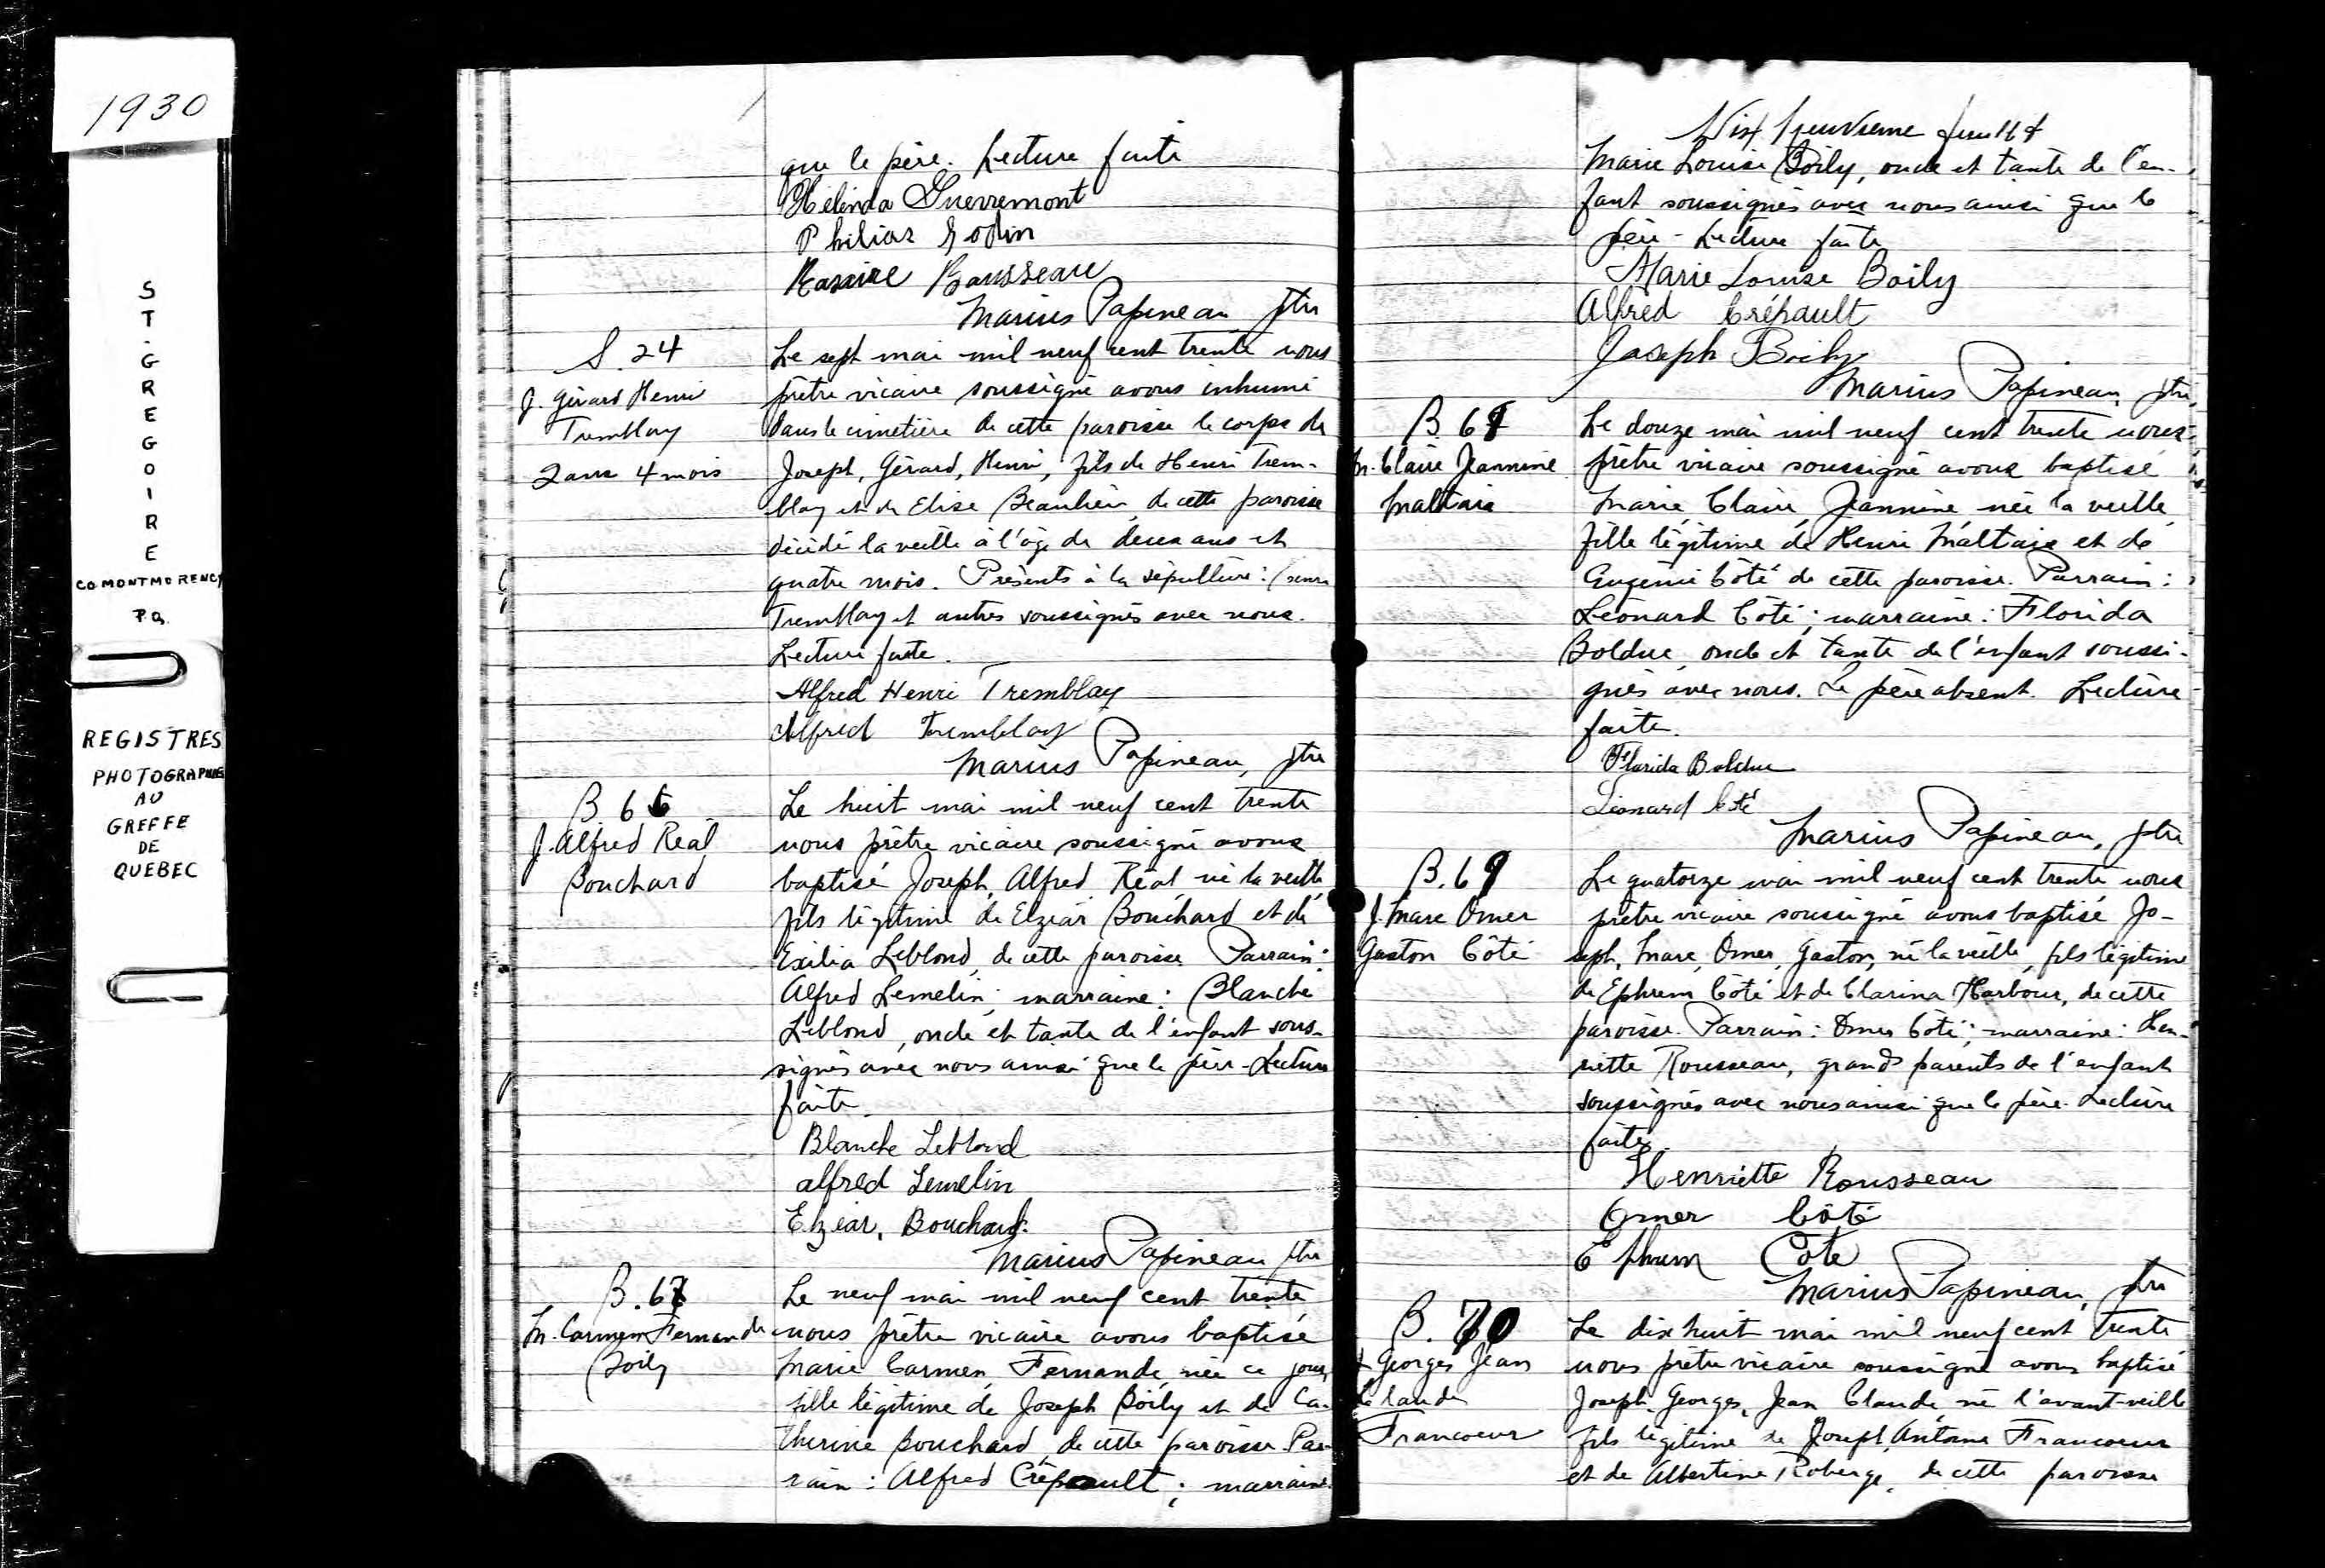 1930
ST-GREGOIRE
CO MONTMORENCY
P.Q.
REGISTRES
PHOTOGRAPHIÉS
AU
GREFFE
DE
QUEBEC
que le père. Lecture faite
Hélinda Guerremont
Philias
Rosaire Rousseau
Marius Papineau ptre
S. 24
J. Gérard Henri
Tremblay
2 ans 4 mois
Le sept mai mil neuf cent trente nous
prêtre vicaire soussigné avons inhumé
dans le cimetière de cette paroisse le corps de
Joseph, Gérard, Henri, fils de Henri Trem-
blay et de Elise Beaulieu, de cette paroisse
décédé la veille à l'âge de deux ans et
quatre mois. Présents à la sépulture: Henri
Tremblay et autres soussignés avec nous.
Lecture faite.
Alfred Henri Tremblay
Alfred Tremblay
Marius Papineau, ptre
B 66
J. Alfred Réal
Bouchard
Le huit mai mil neuf cent trente
nous prêtre vicaire soussigné avons
baptisé Joseph, Alfred Réal né la veille
fils légitime de Elzéar Bouchard et de
Exilia Leblond, de cette paroisse Parrain:
Alfred Lemelin; marraine: Blanche
Leblond, oncle et tante de l'enfant sous-
signés avec nous ainsi que le père - Lecture
faite.
Blanche Leblond
alfred Lemelin
Elzéar, Bouchard.
Marius Papineau ptre
B. 67
M. Carmen Fernande
Boily
Le neuf mai mil neuf cent trente
nous prêtre vicaire avons baptisé
Marie Carmen, Fernande, née ce jour,
fille légitime de Joseph Boily et de Ca-
therine Bouchard, de cette paroisse. Par-
rain: Alfred Crépault; marraine
feuillet
Marie Louise Boily, oncle et tante de l'en-
fant soussignés avec nous ainsi que le
père - Lecture faite
Marie Louise Boily
Alfred Crépault
Joseph Boily
Marius Papineau, ptre,
B. 68
M. Claire Jeannine
Maltais
Le douze mai mil neuf cent trente nous
prêtre vicaire soussigné avons baptisé
Marie, Claire, Jeannine née la veille
fille légitime de Henri Maltais et de
Eugénie Côté de cette paroisse. Parrain:
Léonard Côté; marraine: Florida
Bolduc, oncle et tante de l'enfant soussi-
gnés avec nous. Le père absent. Lecture
faite.
Florida Bolduc
Léonard Côté
Marius Papineau, ptre
B. 69
J. Marc Omer
Gaston Côté
Le quatorze mai mil neuf cent trente nous
prêtre vicaire soussigné avons baptisé Jo-
seph, Marc, Omer, Gaston, né la veille, fils légitime
de Ephrem Côté et de Clarina Harbour, de cette
paroisse. Parrain: Omer Côté; marraine: Hen-
riette Rousseau, grands parents de l'enfant
soussignés avec nous ainsi que le père. Lecture
faite.
Henriette Rousseau
Omer Côté
Ephrem Côté
Marius Papineau, ptre
B. 70
J Georges Jean
Claude
Francoeur
Le dix huit mai mil neuf cent trente
nous prêtre vicaire soussigné avons baptisé
Joseph, Georges, Jean Claude, né l'avant-veille
fils légitime de Joseph, Antoine Francoeur
et de Albertine Roberge, de cette paroisse